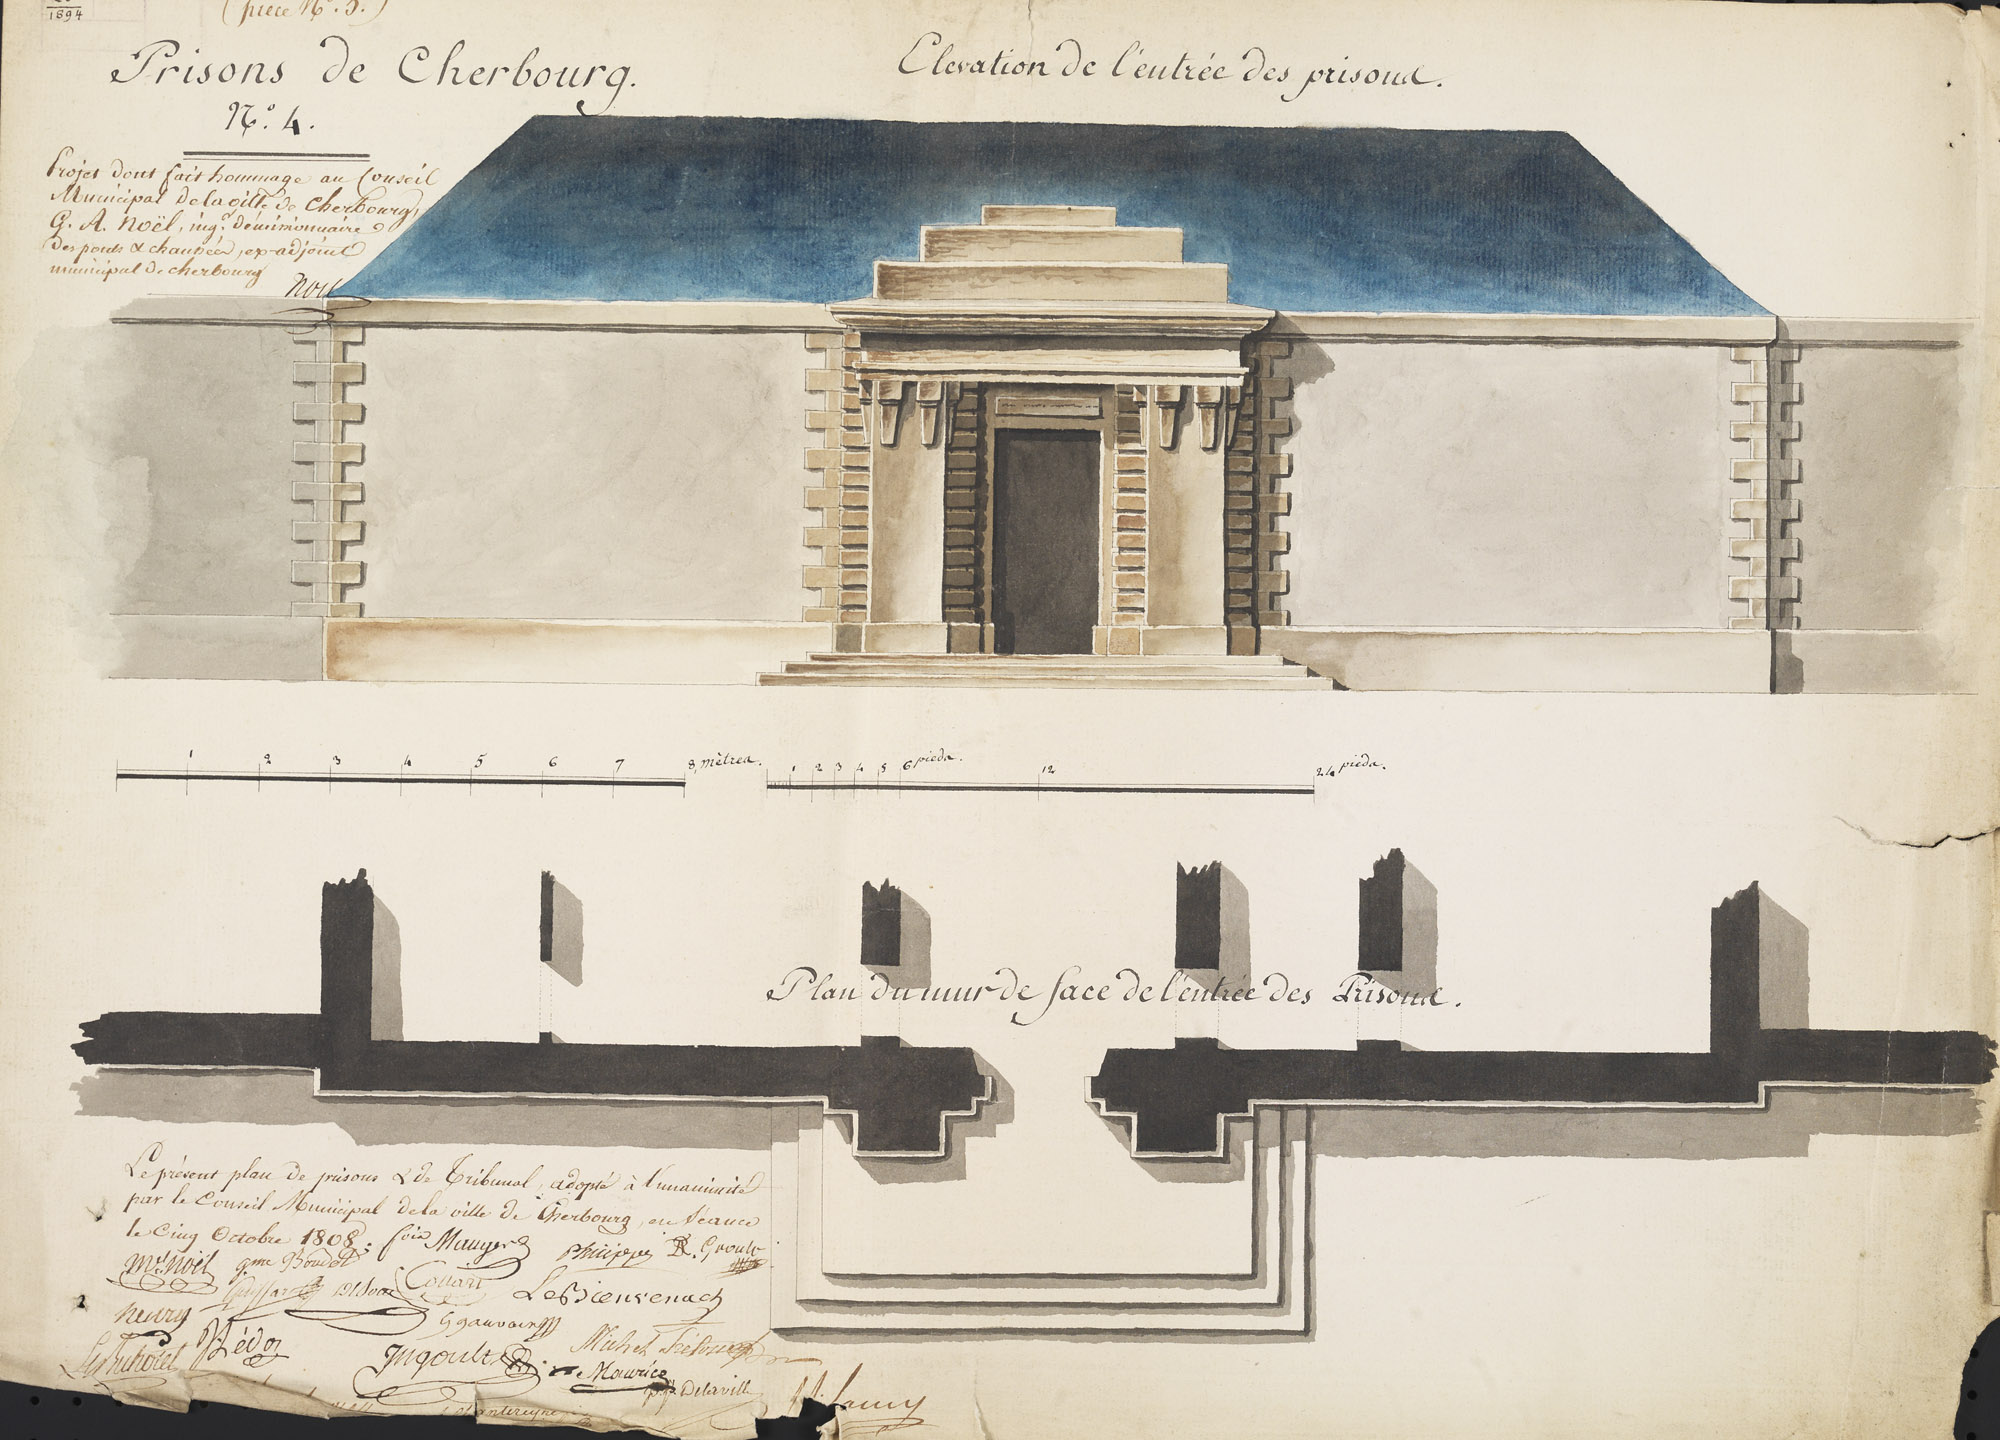 1894
(pièce N°. 5.)
Prisons de Cherbourg.
N°. 4.
Elevation de l'entrée des prisons.
Projet dont fait hommage au Conseil
Municipal de la ville de Cherbourg,
G. A. Noël, ingr. démissionnaire
des ponts & chaussées, ex-adjoint
municipal de cherbourg
Noel
1 2 3 4 5 6 7 8 mètres.
1 2 3 4 5 6 pieds. 12 24 pieds.
Plan du mur de face de l'entrée des Prisons.
Le présent plan de prisons & de Tribunal, adopté à l'unanimité
par le Conseil Municipal de la ville de Cherbourg, en séance
le cinq Octobre 1808.
Mauger Philippe Groult
Noël Boudet
Collart LeBienvenu
heury Ggauvain
Bédor Ingoult Michel
Maurice
Delaville